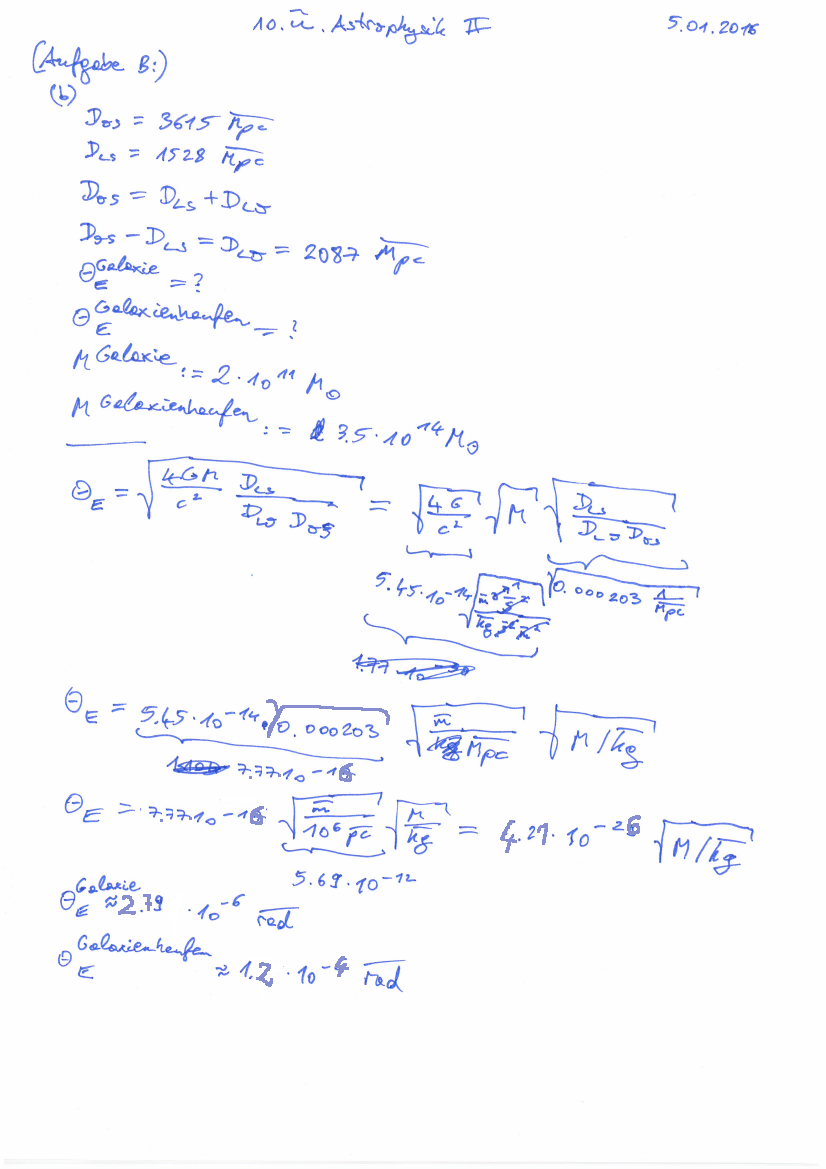 10. Ü. Astrophysik II 5.01.2016
(Aufgabe B:)
(b)
D_OS = 3615 Mpc
D_LS = 1528 Mpc
D_OS = D_LS + D_LO
D_OS - D_LS = D_LO = 2087 Mpc
Θ_E^Galaxie = ?
Θ_E^Galaxienhaufen = ?
M^Galaxie := 2 · 10^11 M_⊙
M^Galaxienhaufen := 3.5 · 10^14 M_⊙
Θ_E = √(4GM/c² D_LS/(D_LO D_OS)) = √(4G/c²) √M √(D_LS/(D_LO D_OS))
5.45 · 10^-14 √(m³ 1/s²/(kg m²/s²)) √(0.000203 1/Mpc)
1.77 · 10
Θ_E = 5.45 · 10^-14 · √(0.000203) √(m/(kg Mpc)) √(M/kg)
7.77 · 10^-16
Θ_E = 7.77 · 10^-16 √(m/(10^6 pc)) √(M/kg) = 4.21 · 10^-26 √(M/kg)
5.69 · 10^-12
Θ_E^Galaxie ≈ 2.79 · 10^-6 rad
Θ_E^Galaxienhaufen ≈ 1.2 · 10^-4 rad